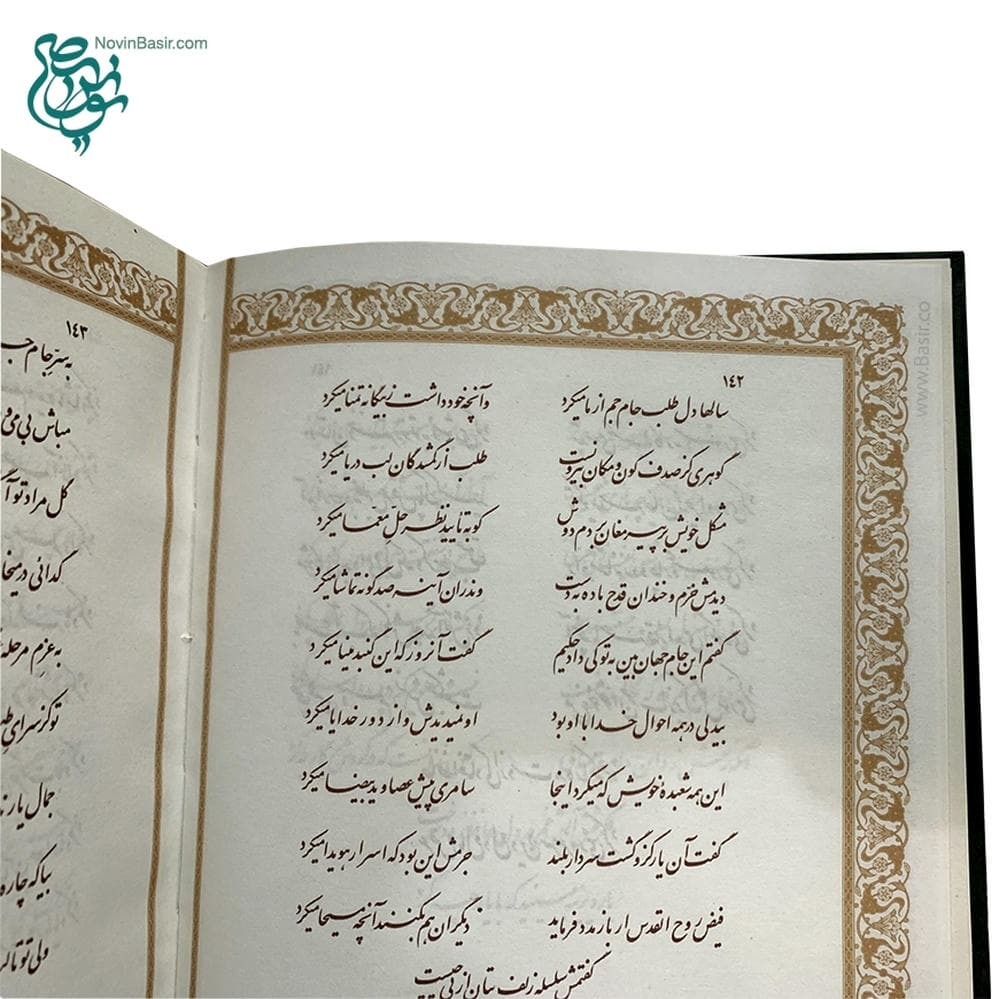 NovinBasir.com
www.Basir.co
١٤٢
سالها دل طلب جام جم از ما میکرد وآنچه خود داشت ز بیگانه تمنا میکرد
گوهری کز صدف کون و مکان بیرونست طلب از گمشدگان لب دریا میکرد
مشکل خویش بر پیر مغان بردم دوش کو به تایید نظر حلّ معمّا میکرد
دیدمش خرّم و خندان قدح باده به دست وندران آینه صد گونه تماشا میکرد
گفتم این جام جهان بین به تو کی داد حکیم گفت آنروز که این گنبد مینا میکرد
بیدلی در همه احوال خدا با او بود او نمیدیدش و از دور خدایا میکرد
این همه شعبدهٔ خویش که میکرد اینجا سامری پیش عصا و ید بیضا میکرد
گفت آن یار کزو گشت سر دار بلند جرمش این بود که اسرار هویدا میکرد
فیض روح القدس ار باز مدد فرماید دیگران هم بکنند آنچه مسیحا میکرد
گفتمش سلسله زلف بتان از پی چیست
١٤٣
به سرّ جام
مباش بی می و
گل مراد تو
گدائی در
به عزم مرحله
تو کز سرای
جمال یار
بیا که چاره
ولی تو تا